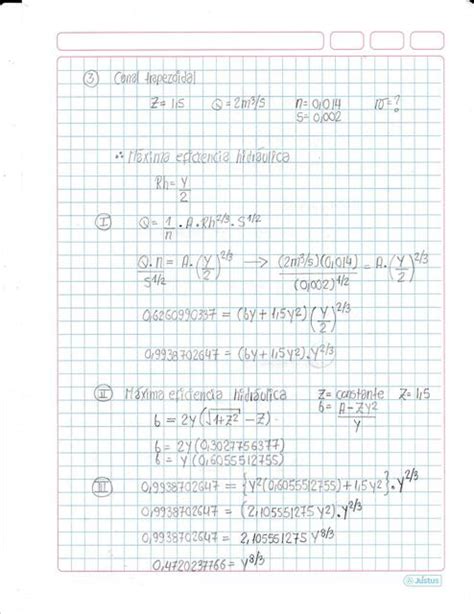 ③ Canal trapezoidal
Z= 1,5 Q = 2m³/s n= 0,014 v=?
S= 0,002
∴ Máxima eficiencia hidráulica
Rh= y/2
Ⓘ Q= 1/n · A · Rh^2/3 · S^1/2
Q.n/S^1/2 = A · (y/2)^2/3 → (2m³/s)(0,014)/(0,002)^1/2 = A · (y/2)^2/3
0,6260990337 = (by + 1,5y²) (y/2)^2/3
0,9938702647 = (by + 1,5y²) · y^2/3
Ⓘ Máxima eficiencia hidráulica Z= constante Z= 1,5
b = 2y (√1+Z² - Z) b = A-Zy²/y
b = 2y (0,3027756377)
b = y (0,6055512755)
Ⅲ 0,9938702647 = {y²(0,6055512755) + 1,5y²} · y^2/3
0,9938702647 = (2,105551275 y²) · y^2/3
0,9938702647 = 2,105551275 y^8/3
0,4720237766 = y^8/3
Justus